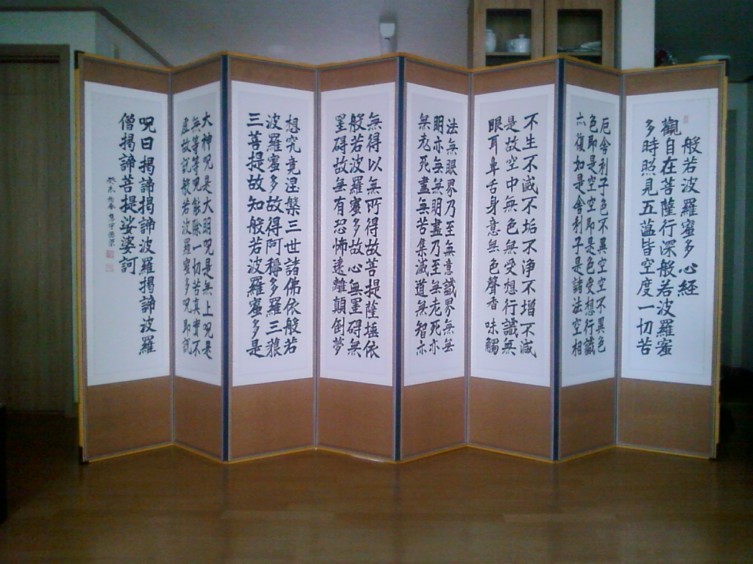 般若波羅蜜多心經
觀自在菩薩行深般若波羅蜜
多時照見五蘊皆空度一切苦
厄舍利子色不異空空不異色
色即是空空即是色受想行識
亦復如是舍利子是諸法空相
不生不滅不垢不淨不增不減
是故空中無色無受想行識無
眼耳鼻舌身意無色聲香味觸
法無眼界乃至無意識界無無
明亦無無明盡乃至無老死亦
無老死盡無苦集滅道無智亦
無得以無所得故菩提薩埵依
般若波羅蜜多故心無罣碍無
罣碍故無有恐怖遠離顛倒夢
想究竟涅槃三世諸佛依般若
波羅蜜多故得阿耨多羅三藐
三菩提故知般若波羅蜜多是
大神呪是大明呪是無上呪是
無等等呪能除一切苦真實不
虛故說般若波羅蜜多呪即說
呪曰揭諦揭諦波羅揭諦波羅
僧揭諦菩提娑婆訶